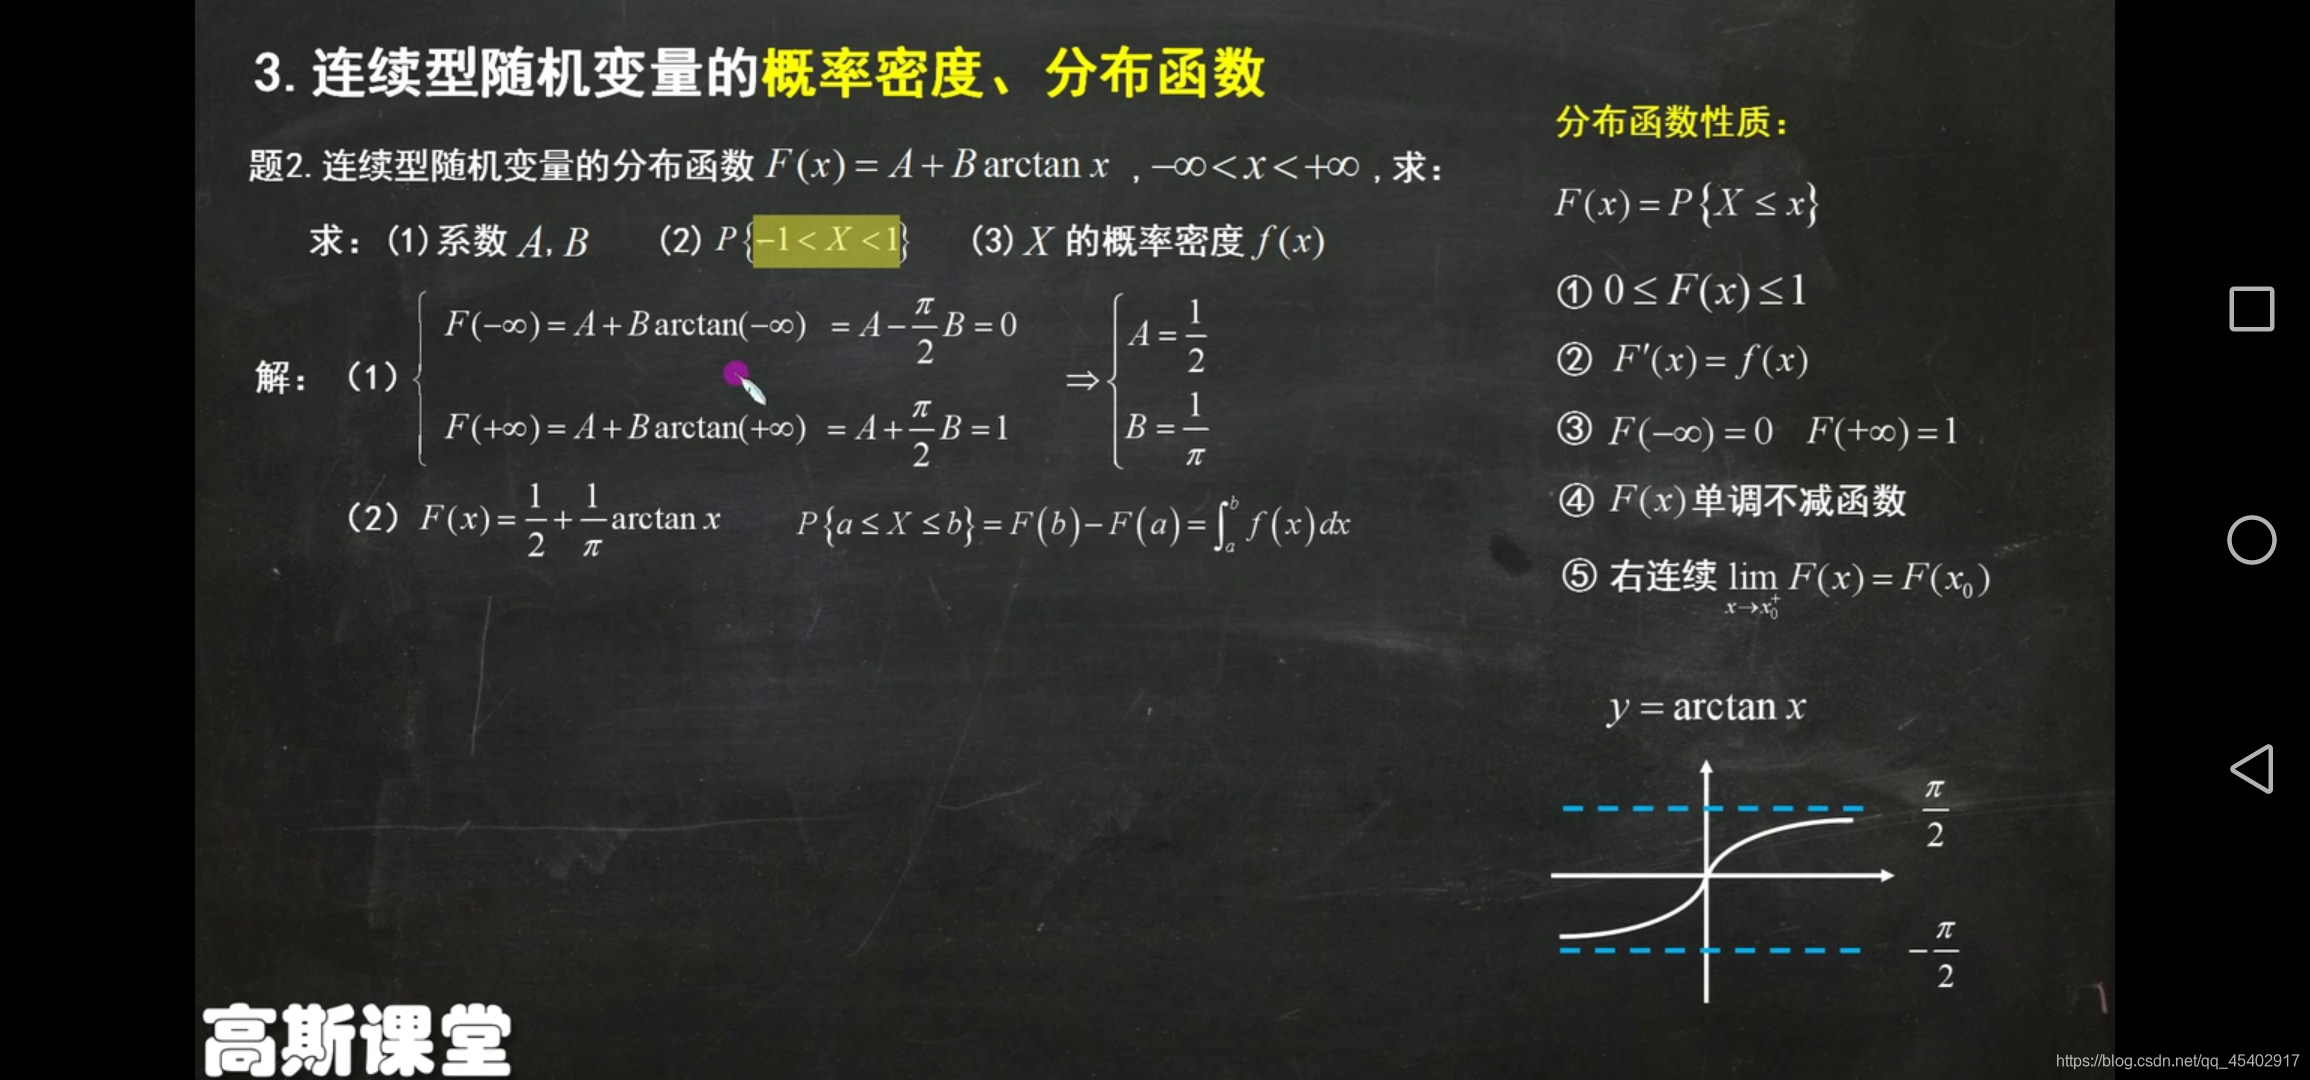 3. 连续型随机变量的概率密度、分布函数
题2. 连续型随机变量的分布函数 F(x) = A + B arctan x , -∞ < x < +∞ , 求:
求: (1) 系数 A, B (2) P{-1 < X < 1} (3) X 的概率密度 f(x)
解: (1) { F(-∞) = A + B arctan(-∞) = A - π/2 B = 0
F(+∞) = A + B arctan(+∞) = A + π/2 B = 1
⇒ { A = 1/2
B = 1/π
(2) F(x) = 1/2 + 1/π arctan x P{a ≤ X ≤ b} = F(b) - F(a) = ∫_a^b f(x)dx
分布函数性质:
F(x) = P{X ≤ x}
① 0 ≤ F(x) ≤ 1
② F'(x) = f(x)
③ F(-∞) = 0 F(+∞) = 1
④ F(x) 单调不减函数
⑤ 右连续 lim_{x→x₀⁺} F(x) = F(x₀)
y = arctan x
π/2
-π/2
高斯课堂
https://blog.csdn.net/qq_45402917